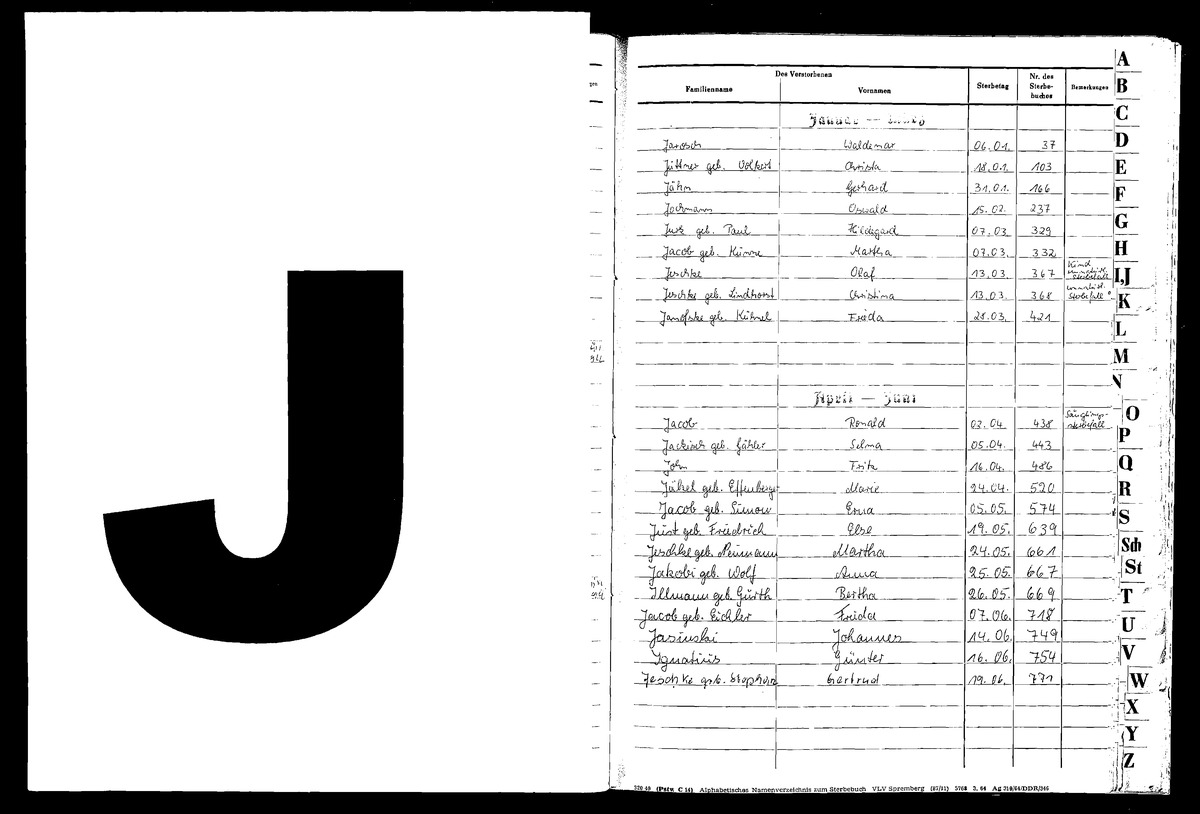 J
Des Verstorbenen
Familienname Vornamen Sterbetag Nr. des Sterbebuches Bemerkungen
Januar — März
Jarosch Waldemar 06.01. 37
Jüttner geb. Volkert Christa 18.01. 103
Jähn Gerhard 31.01. 166
Jochmann Oswald 15.02. 237
geb. Paul Hildegard 07.03. 329
Jacob geb. Martha 07.03. 332
Jeschke Olaf 13.03. 367 Kind Sterbefall
Jeschke geb. Lindhorst Christina 13.03. 368 Sterbefall
geb. Kühnel Frieda 28.03. 421
April — Juni
Jacob Ronald 02.04. 438 Säuglingssterbefall
Jackisch geb. Gähler Selma 05.04. 443
John Fritz 16.04. 486
Jäkel geb. Effenberger Marie 24.04. 520
Jacob geb. Simon Erna 05.05. 574
Just geb. Friedrich Else 19.05. 639
Jeschke geb. Neumann Martha 24.05. 661
Jakobi geb. Wolf Anna 25.05. 667
Illmann geb. Gürth Bertha 26.05. 669
Jacob geb. Eichler Frieda 07.06. 718
Jasinski Johannes 14.06. 749
Ignatius Günter 16.06. 754
Jeschke geb. Stephan Gertrud 19.06. 771
A
B
C
D
E
F
G
H
I,J
K
L
M
N
O
P
Q
R
S
Sch
St
T
U
V
W
X
Y
Z
320 40 (Pstw. C 14) Alphabetisches Namenverzeichnis zum Sterbebuch VLV Spremberg (87/11) 5768 3. 64 Ag 310/64/DDR/346